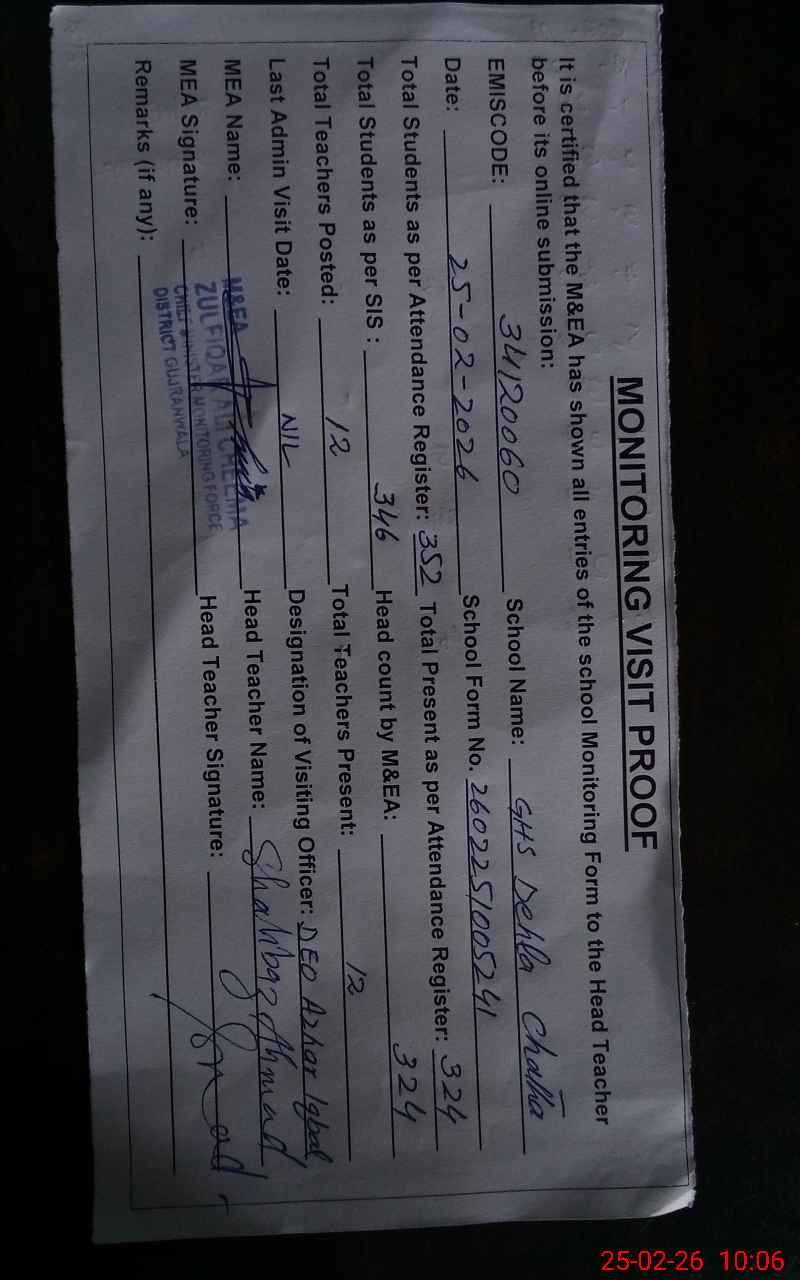 MONITORING VISIT PROOF
It is certified that the M&EA has shown all entries of the school Monitoring Form to the Head Teacher
before its online submission:
EMISCODE: 34120060 School Name: GHS Dehla Chatha
Date: 25-02-2026 School Form No. 2602251005241
Total Students as per Attendance Register: 352 Total Present as per Attendance Register: 324
Total Students as per SIS : 346 Head count by M&EA: 324
Total Teachers Posted: 12 Total Teachers Present: 12
Last Admin Visit Date: NIL Designation of Visiting Officer: DEO Azhar Iqbal
MEA Name: Head Teacher Name: Shahbaz Ahmad
M&EA
ZULFIQAR ALI CHEEMA
CHIEF MINISTER MONITORING FORCE
DISTRICT GUJRANWALA
MEA Signature: Head Teacher Signature:
Remarks (if any):
25-02-26 10:06